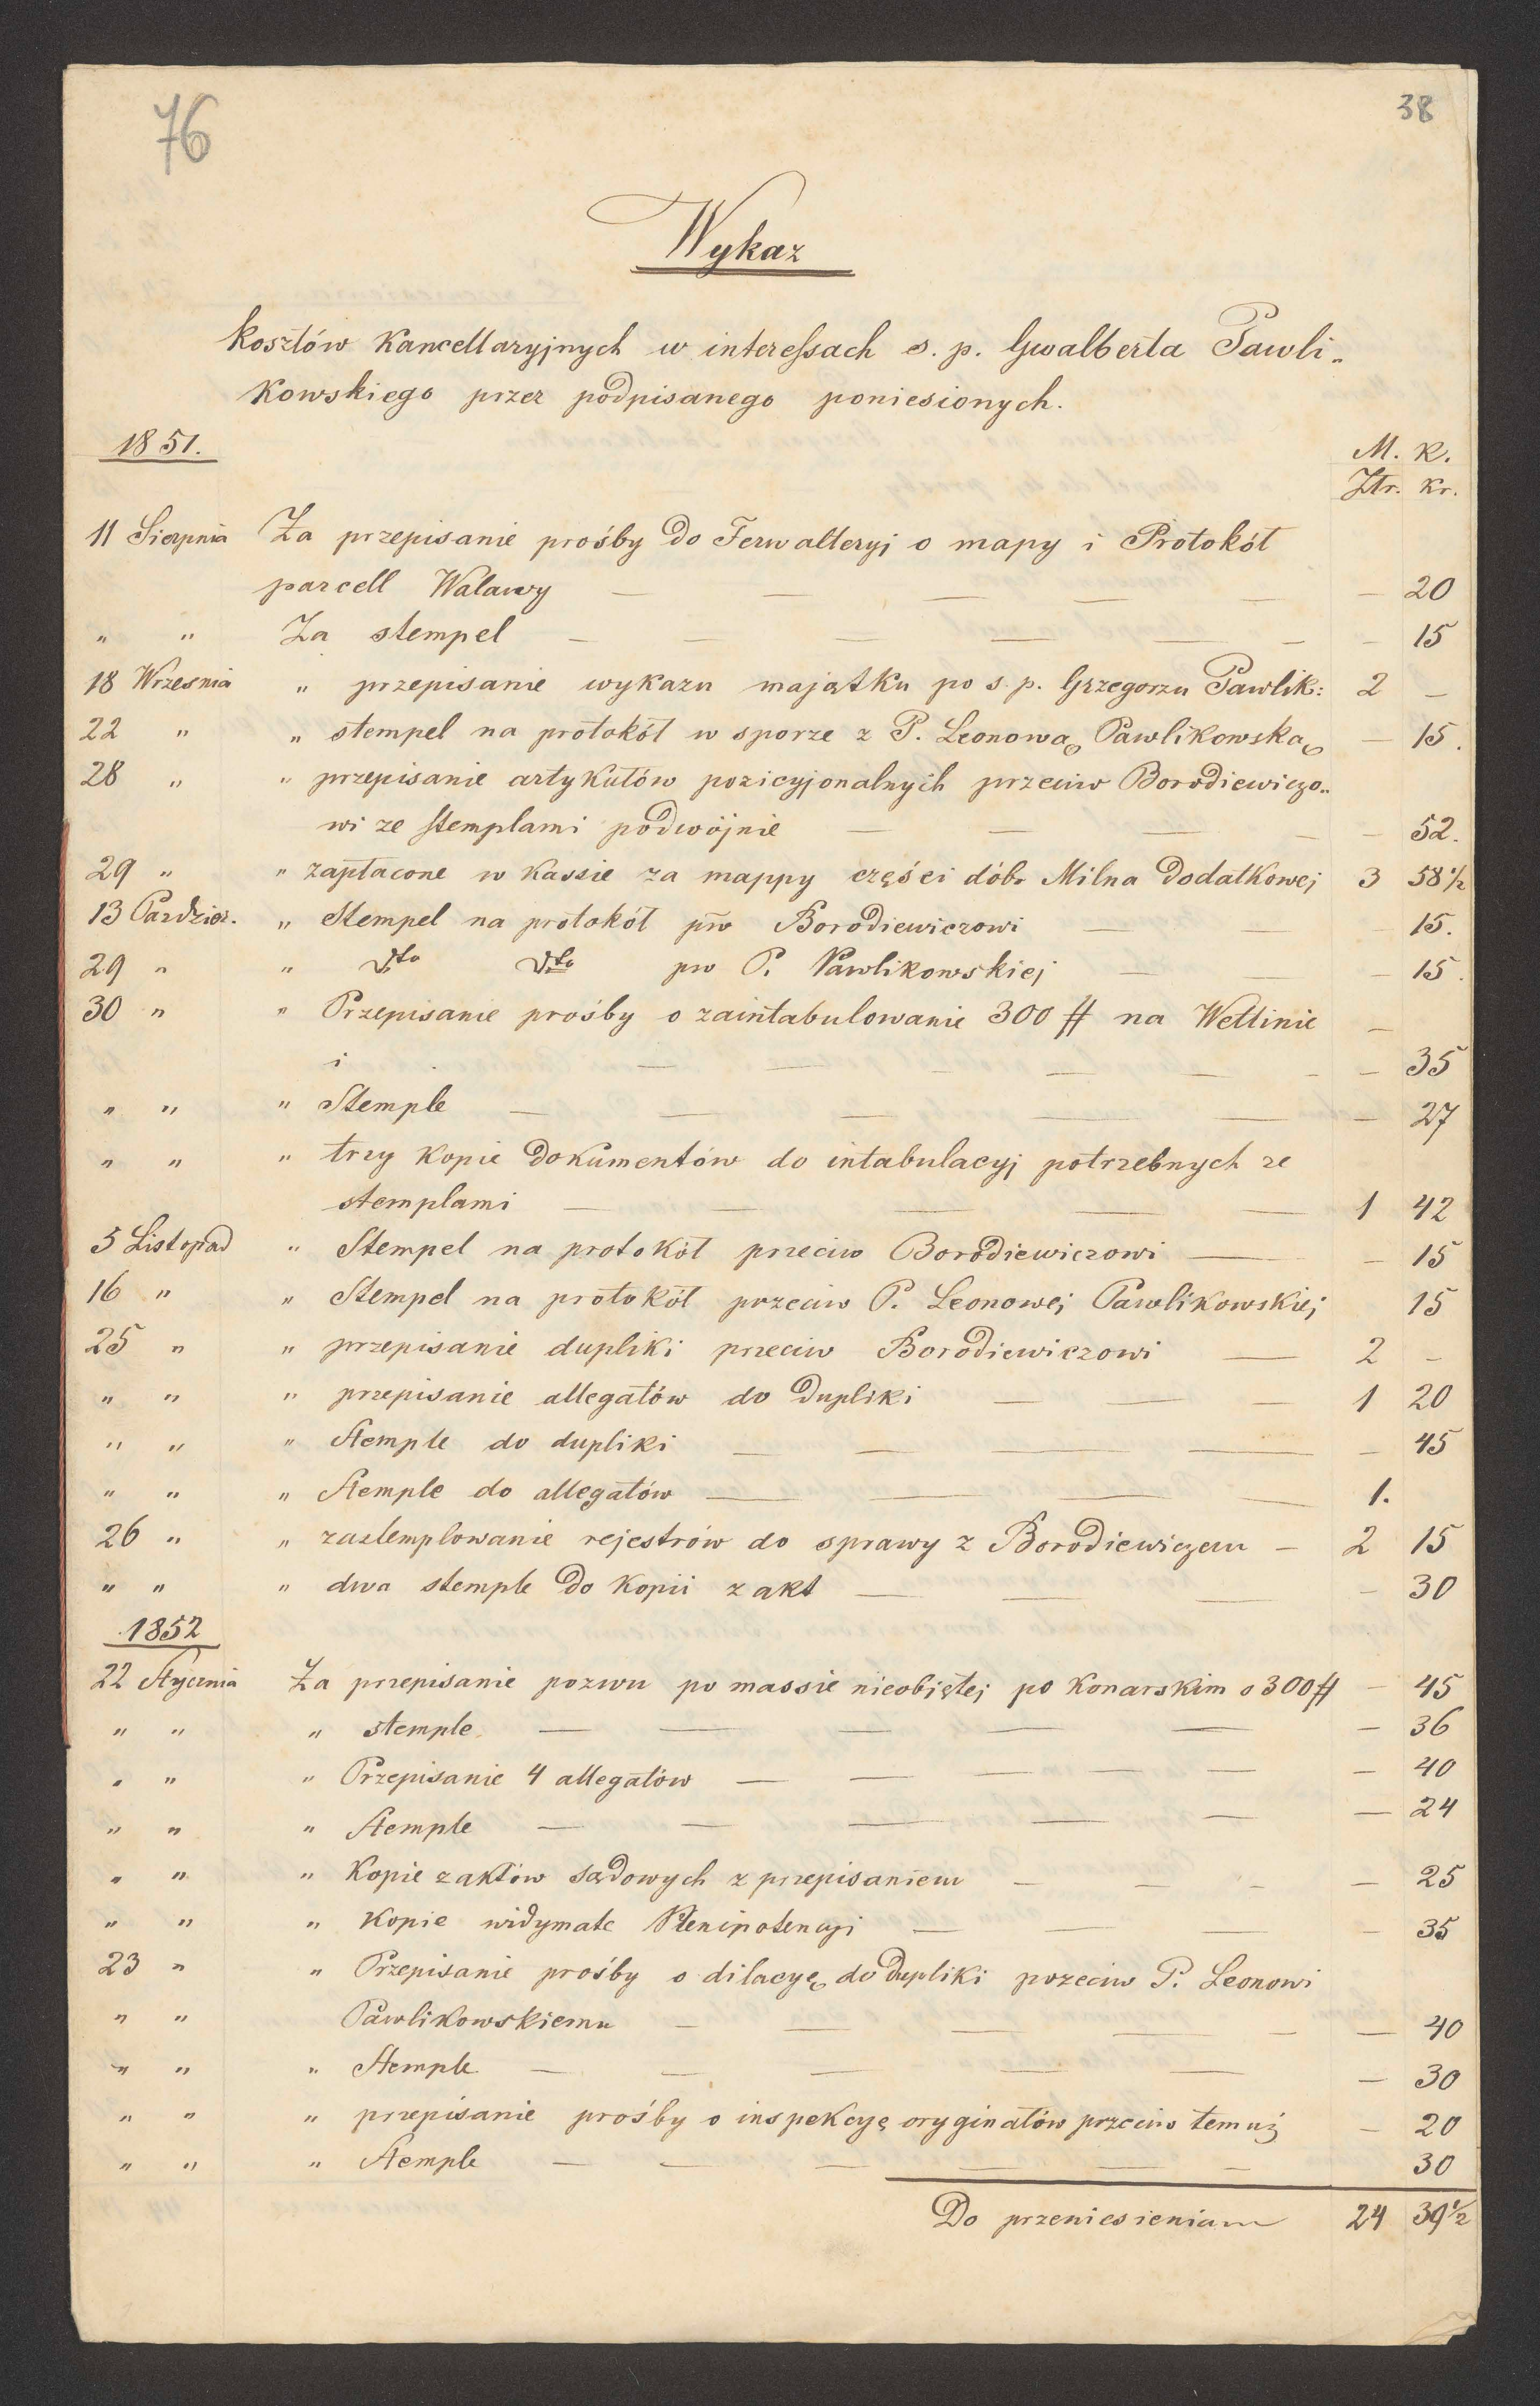 76
38
Wykaz
kosztów Kancellaryjnych w interessach ś. p. Gwalberta Pawli-
kowskiego przez podpisanego poniesionych.
1851.
M. K.
Ztr. Kr.
11 Sierpnia Za przepisanie prośby do Ferwalteryi o mapy i Protokół
parcell Walawy — — — — — — 20
" " Za stempel — — — — — — — 15
18 Wrzesnia " przepisanie wykazu majątku po s. p. Grzegorzu Pawlik: 2 —
22 " " stempel na protokół w sporze z P. Leonową Pawlikowską — 15.
28 " " przepisanie artykułów pozicyjonalnych przeciw Borodiewiczo-
wi ze stemplami podwójnie — — — — — 52.
29 " " zapłacone w Kassie za mappy części dóbr Milna Dodatkowej 3 58 1/2
13 Pazdzier. " Stempel na protokół pw Borodiewiczowi — — — 15.
29 " " dto dto pw P. Pawlikowskiej — — — 15.
30 " " Przepisanie prośby o zaintabulowanie 300 # na Wetlinie —
i — — — — — — — 35
" " " Stemple — — — — — — 27
" " " trzy Kopie Dokumentów do intabulacyj potrzebnych ze
stemplami — — — — — 1 42
5 Listopad " Stempel na protokół przeciw Borodiewiczowi — — 15
16 " " Stempel na protokół przeciw P. Leonowej Pawlikowskiej 15
25 " " przepisanie dupliki przeciw Borodiewiczowi — 2 —
" " " przepisanie allegatów do Dupliki — — — 1 20
" " " Stemple do dupliki — — — — — 45
" " " Stemple do allegatów — — — — 1.
26 " " zastemplowanie rejestrów do sprawy z Borodiewiczem — 2 15
" " " dwa stemple Do Kopii z akt — — — — 30
1852
22 Stycznia Za przepisanie pozwu po massie nieobjętej po Konarskim o 300 # — 45
" " " stemple — — — — — — 36
" " " Przepisanie 4 allegatów — — — — — 40
" " " Stemple — — — — — — 24
" " " Kopie z aktów sądowych z przepisaniem — — — — 25
" " " Kopie widymate Plenipotencyi — — — — 35
23 " " Przepisanie prośby o dilacyę do Dupliki przeciw P. Leonowi
" " Pawlikowskiemu — — — — — — 40
" " " Stemple — — — — — — 30
" " " przepisanie prośby o inspekcyę oryginałów przeciw temuż — 20
" " " Stemple — — — — — — 30
Do przeniesienia 24 39 1/2